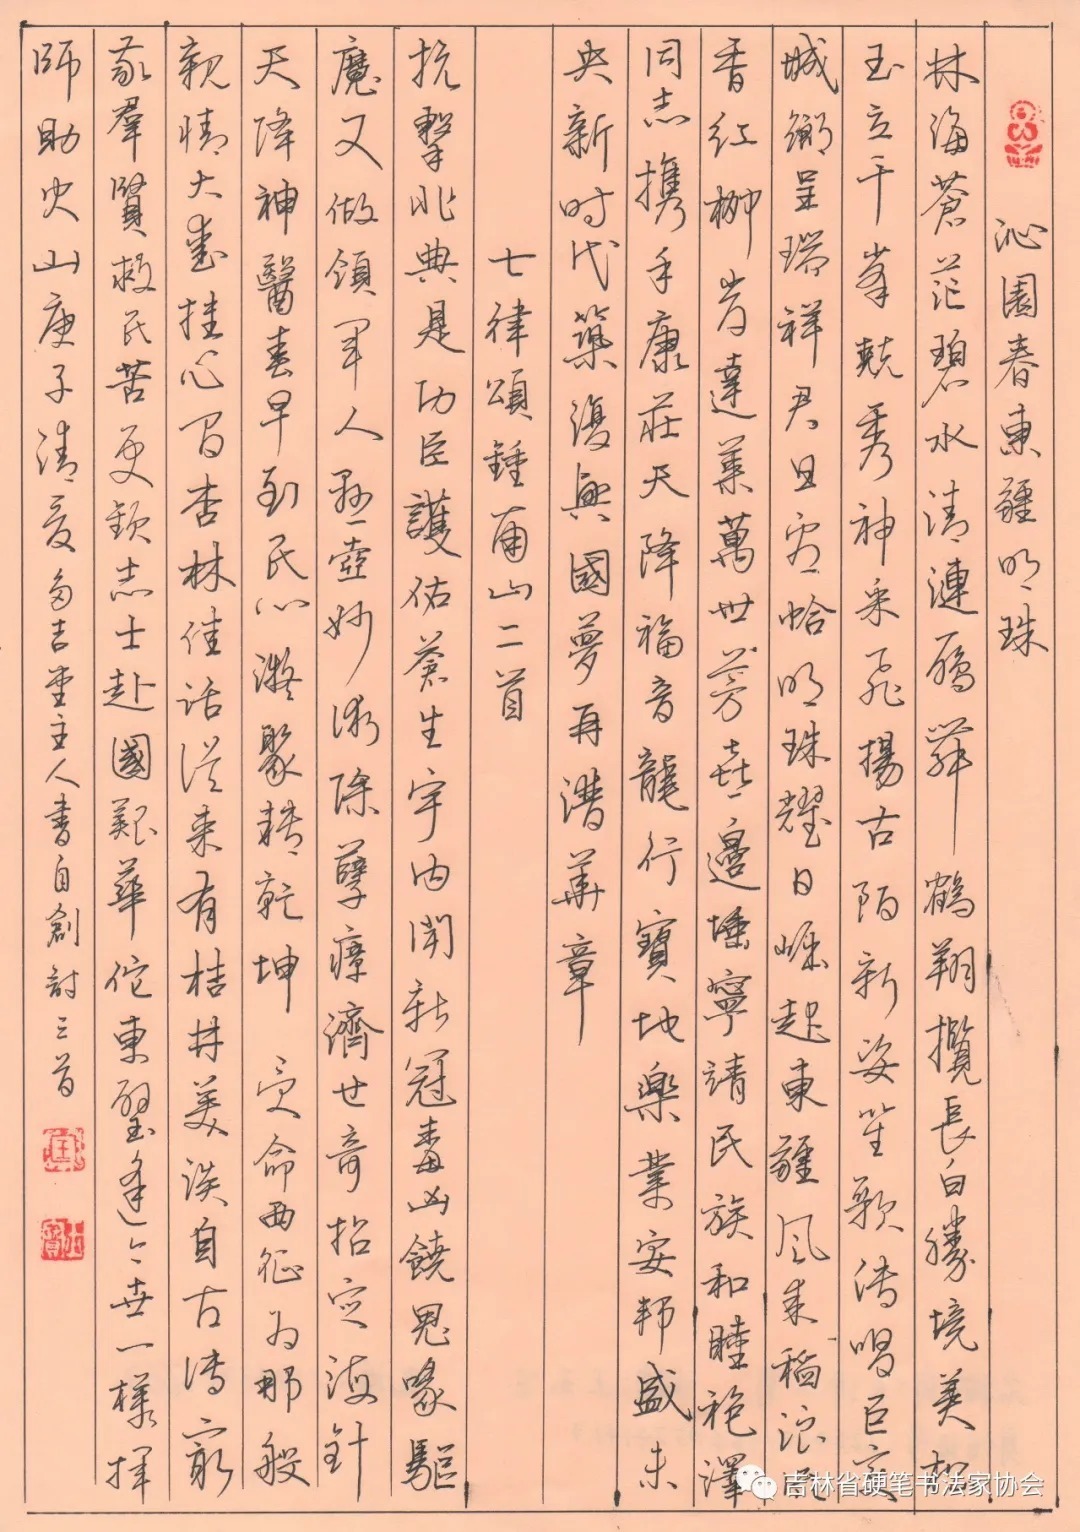 沁園春東疆明珠
林海蒼茫碧水清漣雁舞鶴翔攬長白勝境美如
玉立千峯兢秀神采飛揚古陌新姿笙歌清唱巨變
城鄉呈瑞祥君且看恰明珠耀日崛起東疆風来稻浪
香紅柳岩達萊萬世芳喜邊埵寧靖民族和睦袍澤
同志攜手康莊天降福音龍行寶地樂業安邦盛未
央新时代築復興國夢再譜華章
七律頌鍾南山二首
抗擊非典是功臣護佑蒼生宇内聞新冠毒凶饒鬼喙驅
魔又做領軍人懸壺妙術除孽瘴濟世奇招定海針
天降神醫春早到民心凝聚耕乾坤 受命西征為那般
親情大愛挂心間杏林佳話從来有桔井美談自古傳窮
家羣賢救民苦更欽志士赴國艱華佗東壁逢今世一樣揮
師助火山庚子清夏 吉堂主人書自創詩三首
吉林省硬笔书法家协会